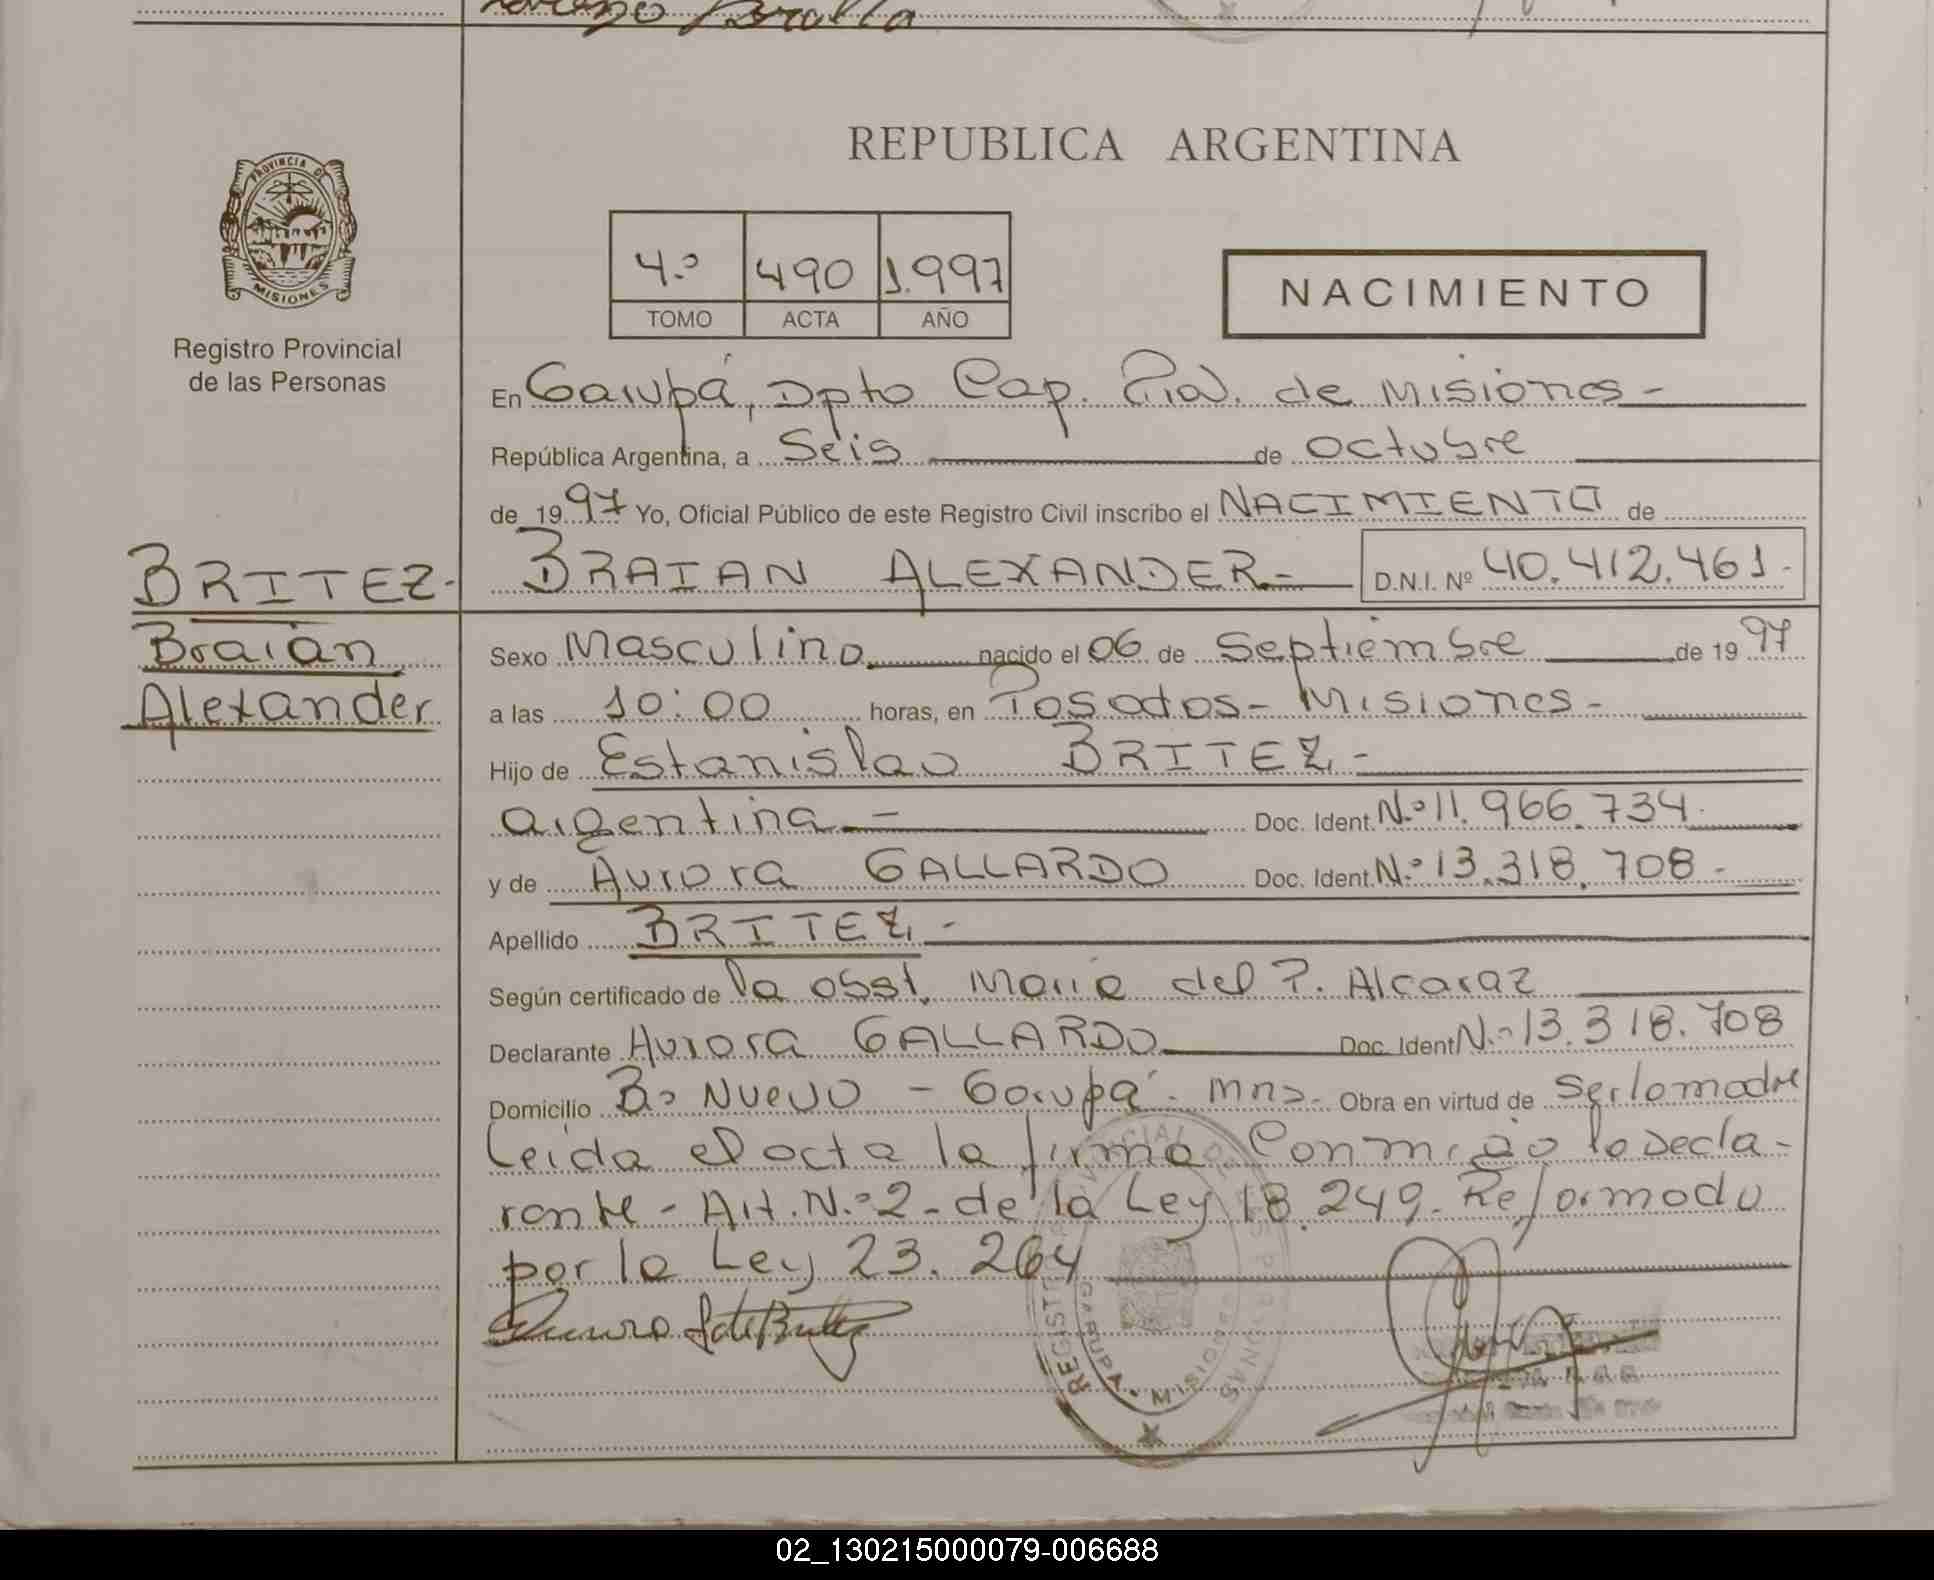 PROVINCIA DE
MISIONES
Registro Provincial
de las Personas
REPUBLICA ARGENTINA
4.º 490 1.997
TOMO ACTA AÑO
NACIMIENTO
En Garupá, Dpto Cap. Pia. de Misiones -
República Argentina, a Seis de Octubre
de 1997 Yo, Oficial Público de este Registro Civil inscribo el NACIMIENTO de
BRITEZ.
BRAIAN ALEXANDER.- D.N.I. Nº 40.412.461.-
Braian
Alexander
Sexo Masculino nacido el 06 de Septiembre de 1997
a las 10:00 horas, en Posadas - Misiones -
Hijo de Estanislao BRITEZ, -
argentina - Doc. Ident. N.º 11.966.734.
y de Aurora GALLARDO Doc. Ident. N.º 13.318.708 -
Apellido BRITEZ, -
Según certificado de la obst. Maria del P. Alcaraz
Declarante Aurora GALLARDO Doc. Ident N.º 13.318.708
Domicilio Bº NUEVO - Garupá - Mns.- Obra en virtud de Ser la madre
Leida el acta la firma Conmigo la decla-
rante - Art. N.º 2 - de la Ley 18.249. Reformado
por la Ley 23.264
REGISTRO PROVINCIAL DE LAS PERSONAS
GARUPA - MISIONES
02_130215000079-006688